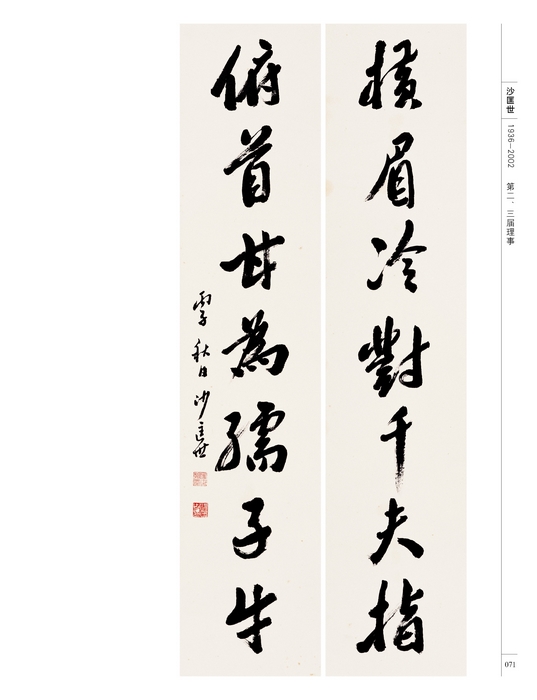 橫眉冷對千夫指
俯首甘為孺子牛
丙子秋日沙匡世
沙匡世 1936—2002 第二、三届理事
071